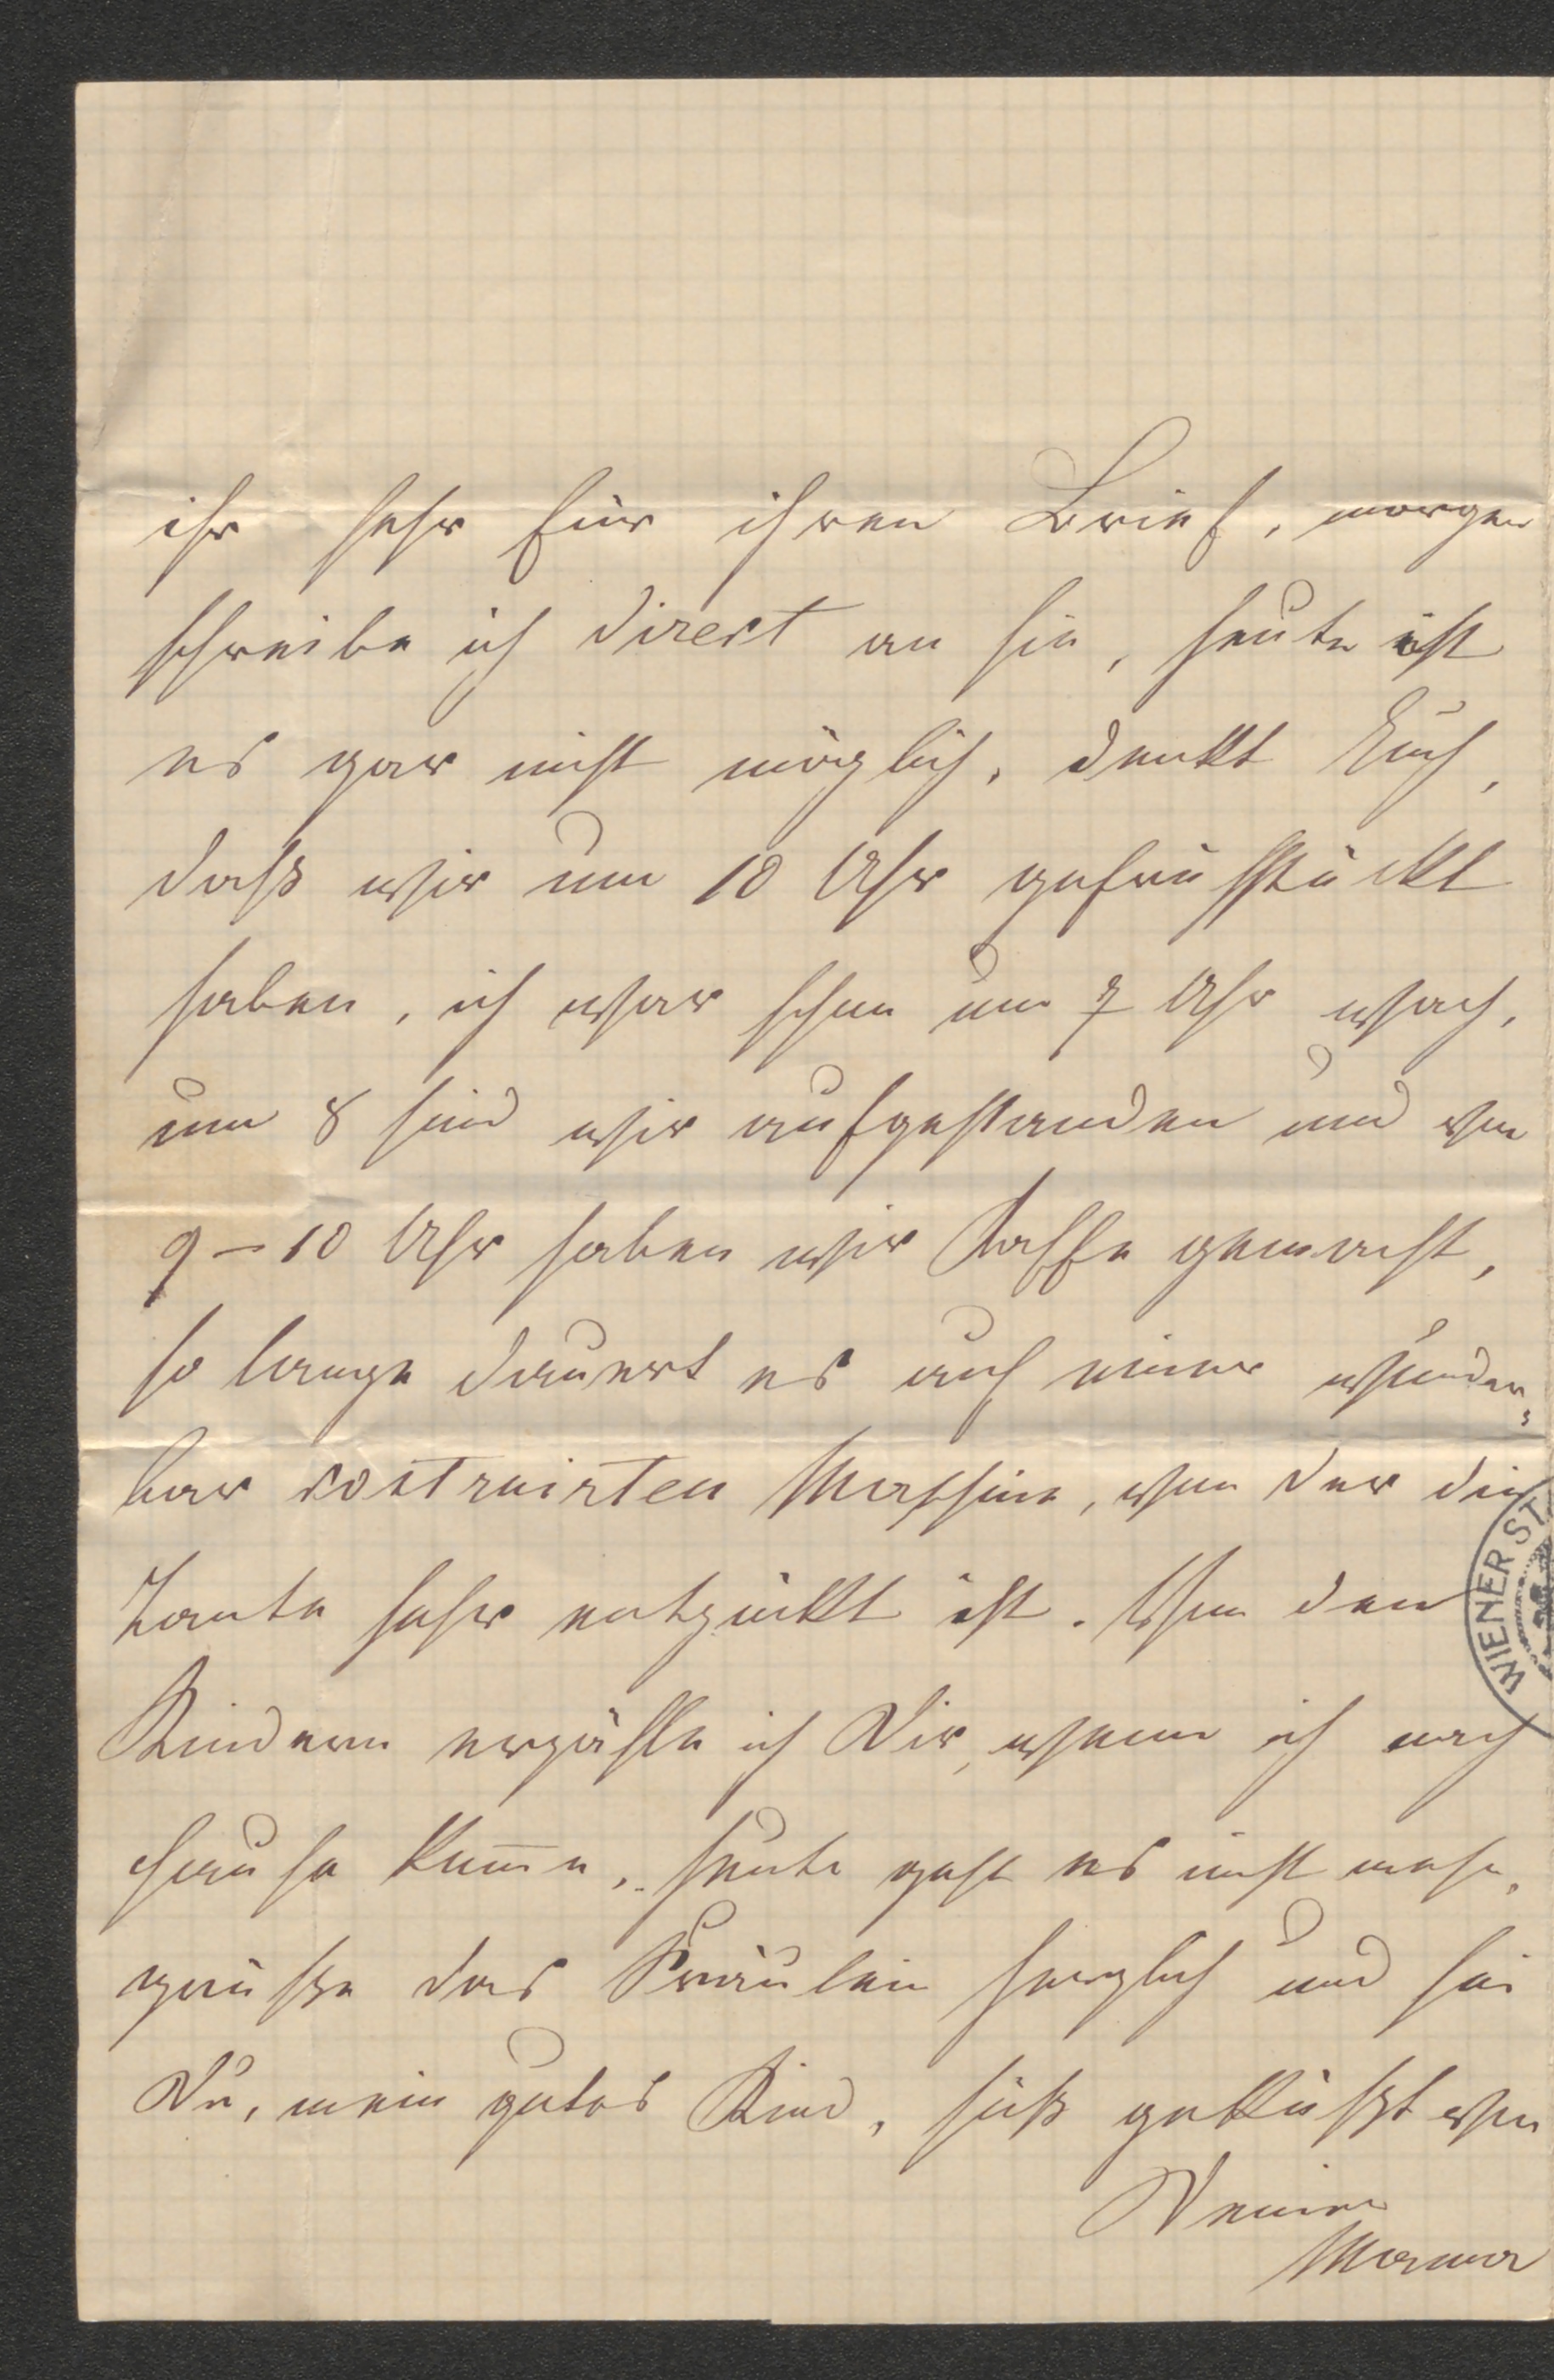 ihr sehr für ihren Brief, morgen
schreibe ich direct an sie, heute ist
es gar nicht möglich, denkt Euch,
daß wir um 10 Uhr gefrühstückt
haben, ich war schon um 7 Uhr wach,
um 8 sind wir aufgestanden und von
9–10 Uhr haben wir Kaffe gemacht,
so lange dauert es auf einer wunder,
bar costruirten Maschine, von der die
Tante sehr entzückt ist. Von den
Kindern erzähle ich Dir, wenn ich nach
Hause kom̅e, heute geht es nicht mehr,
grüße das Fräulein herzlich und sei
Du, mein gutes Kind, süß geküßt von
Deiner
Mama
WIENER ST